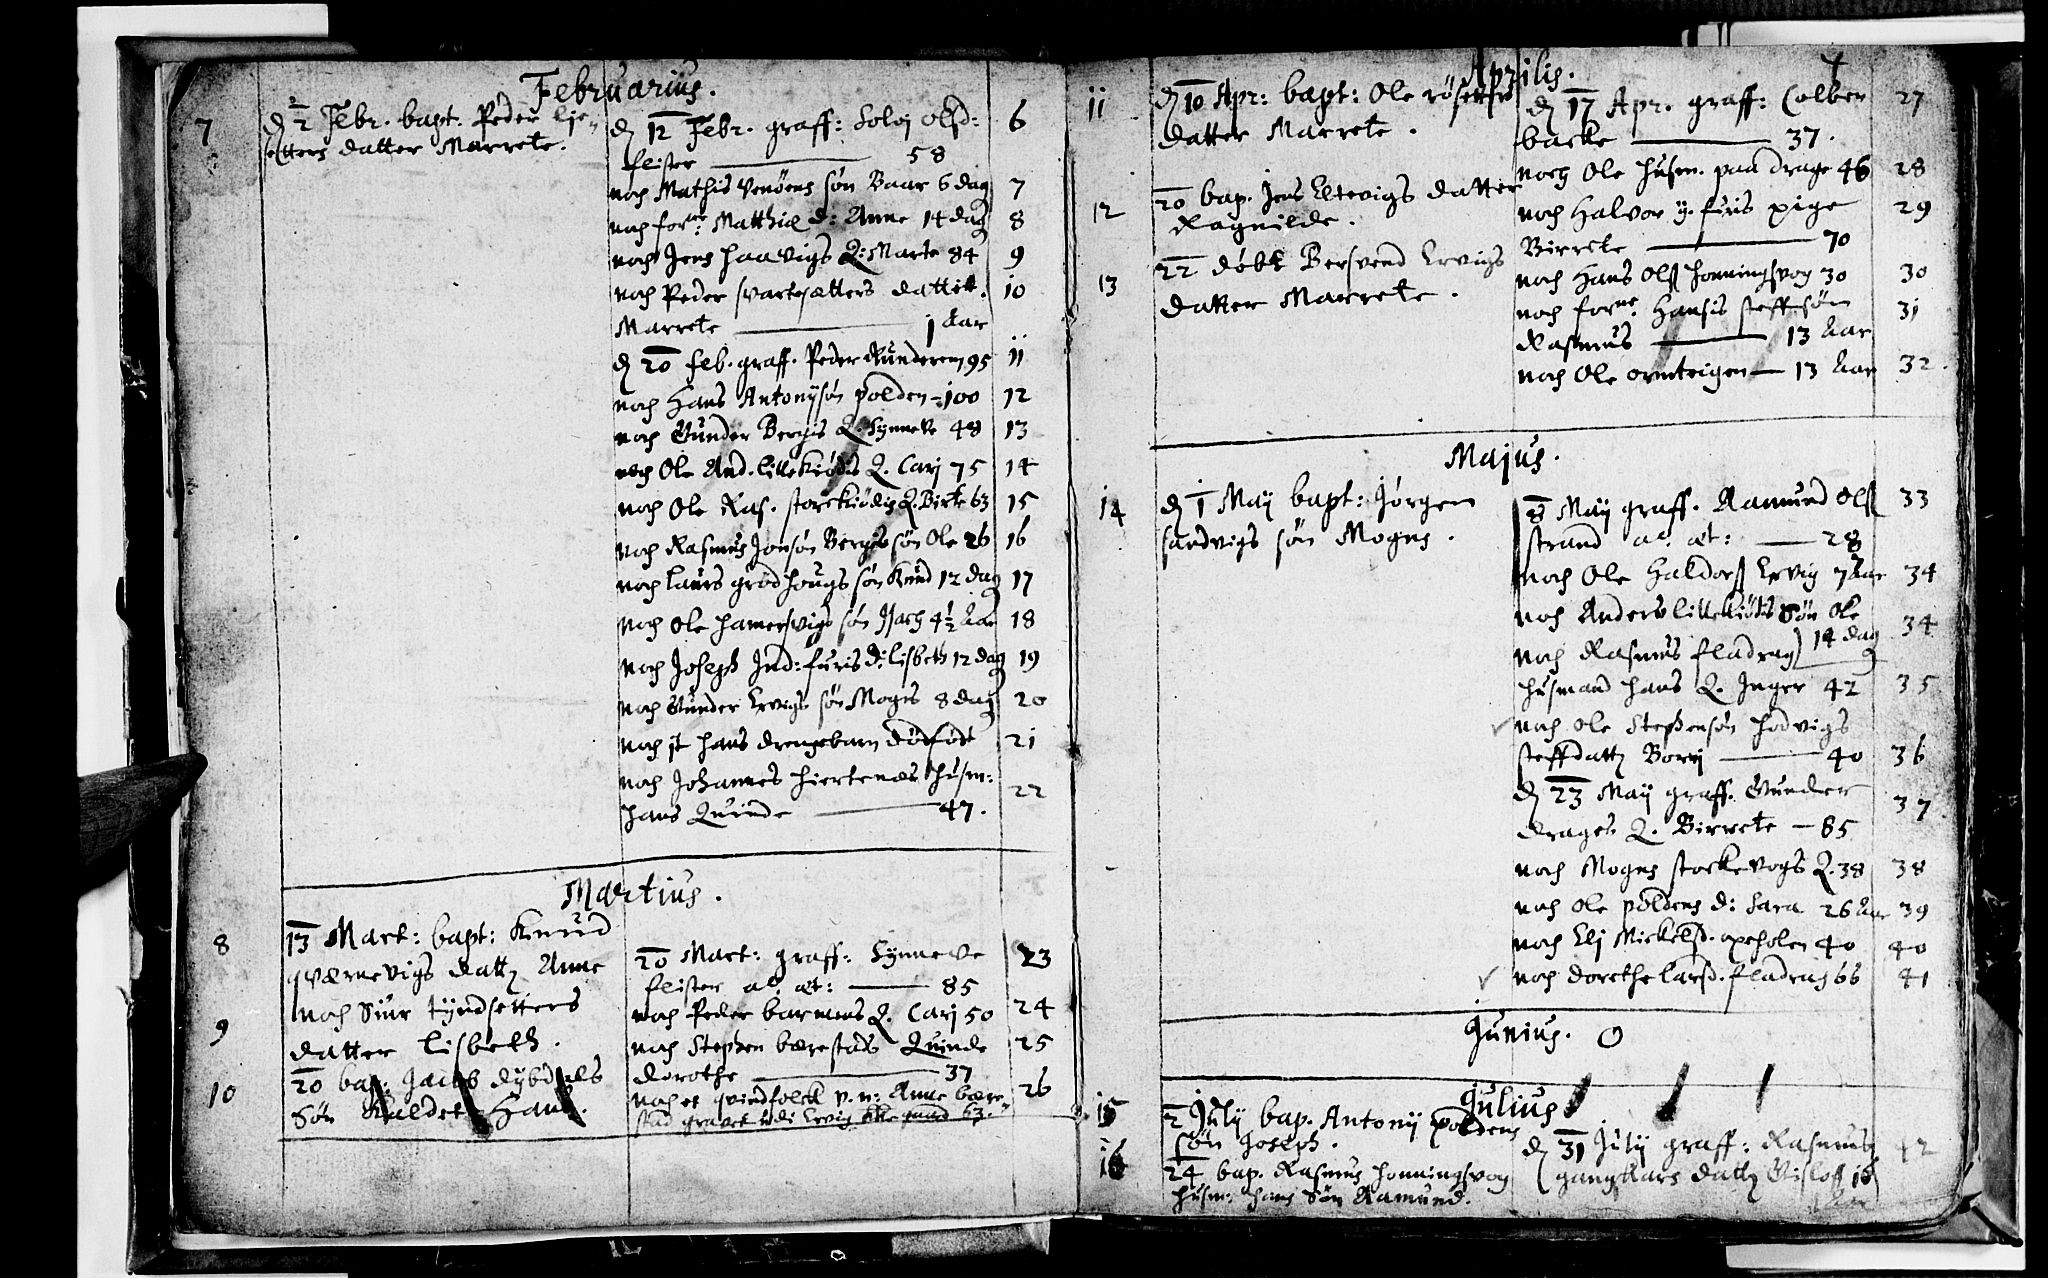 Februarius.
7
d 2 Febr. bapt. Peder
datter Marrete.
d 12 Febr. graff: Solvj Olsd: 6
flister 58
noch Mathis Venöens sön Baar 6 dag 7
noch forne: Matthiæ d: Anne 14 dag 8
noch Jens haavigs Q: Marte 84 9
noch Peder svartesætters datter. 10
Marrete 1 Aar
d 20 feb. graff. Peder Runderem 95 11
noch Hans Antonysön polden - 100 12
noch Gunder Bergis Q. Synneve 48 13
noch Ole And. lillekiödis Q. Carj 75 14
noch Ole Ras. storekiödis Q. Birte 63 15
noch Rasmus Jonsön Berges sön Ole 26 16
noch laurs grödhougs sön Knud 12 dag 17
noch Ole hamersvigs sön Isach 4½ Aar 18
noch Joseph Ind: furis d: lisbeth 12 dag 19
noch Gunder Ervigs sön Mogns 8 dag 20
noch it hans drengebarn dödföd 21
noch Johannes hiertenæs husm: 22
hans Quinde 47.
Martius.
8
13 Mart: bapt: Knud
sværnevigs datt Anne
9
noch Siur tyndsetters
datter lisbeth.
10
20 bap: Jacob dybdals
Sön Kaldet Hans.
20 Mart: graff: Synneve 23
flister al. æt: 85
noch Peder barmens Q. Carj 50 24
noch Stephen bærestads Quinde 25
dorothe 37
noch et qvindfolck v. n: Anne bære- 26
stad gravet udi Ervig 63.
4
Aprilis.
11
d 10 Apr: bapt: Ole
datter Marrete.
12
20 bap. Jens Eltevigs datter
Ragnilde.
13
22 döbt Bersvend Ervigs
datter Marrete.
d 17 Apr. graff: Colben 27
backe 37.
noch Ole husm. paa drage 46 28
noch Halvor y. furis pige 29
Birrete 70
noch Hans Ols honningsvog 30 30
noch forne: Hansis steffsön 31
Rasmus 13 Aar
noch Ole ormteigen 13 Aar 32.
Majus.
14
d 1 May bapt: Jörgen
sandvigs sön Mogns.
8 May graff. Aamund Ols 33
strand al: æt: 28
noch Ole Haldors Ervig 7 Aar 34
noch Anders lillekiödis Sön Ole
14 dag 34
noch Rasmus fladrag
husmand hans Q. Inger 42 35
noch Ole Stephensön hodvigs
steffdatt Borni 40 36
d 23 May graff. Gunder 37
drages Q. Birrete 85
noch Mogns storkevogs Q. 38 38
noch Ole poldens d: Sara 26 Aar 39
noch Elj Mickelsd. opeholen 40 40
noch dorethe larsd. fladrag 66 41
Junius. O
Julius
15
2 July bap. Antony poldens
sön Joseph.
16
24 bap. Rasmus honningsvog
husm: hans Sön Aamund.
d 31 July graff: Rasmus 42
gangstars datt Gislof 16
Aar